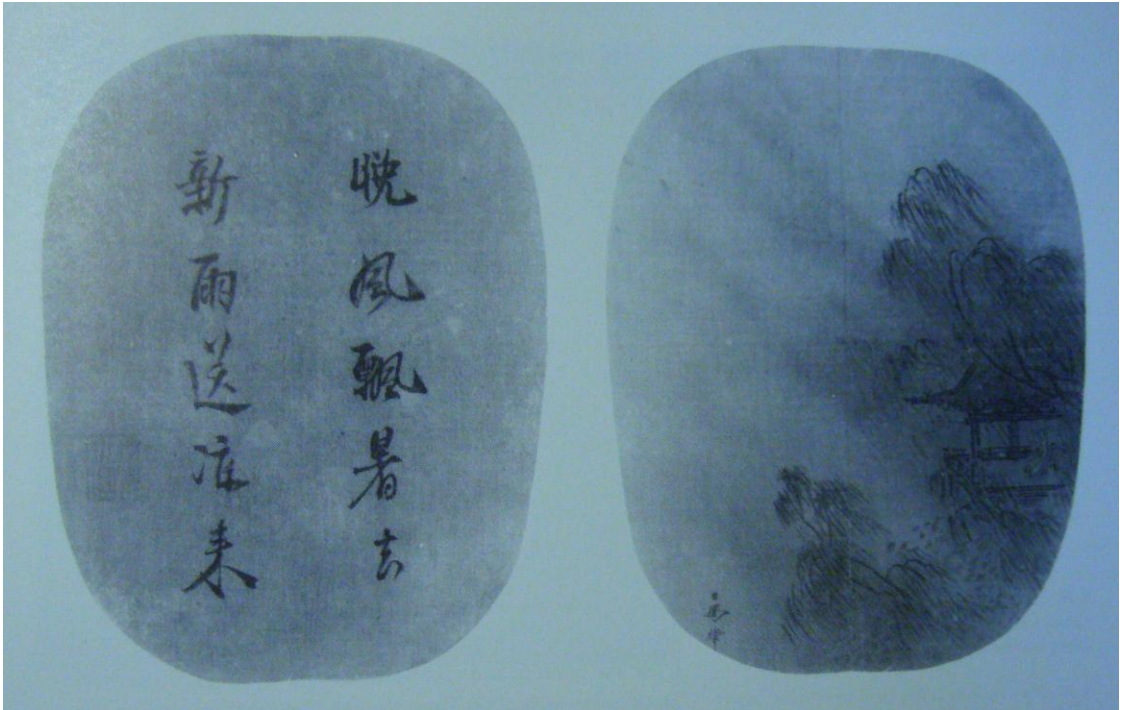 晚風飄暑去
新雨送涼来